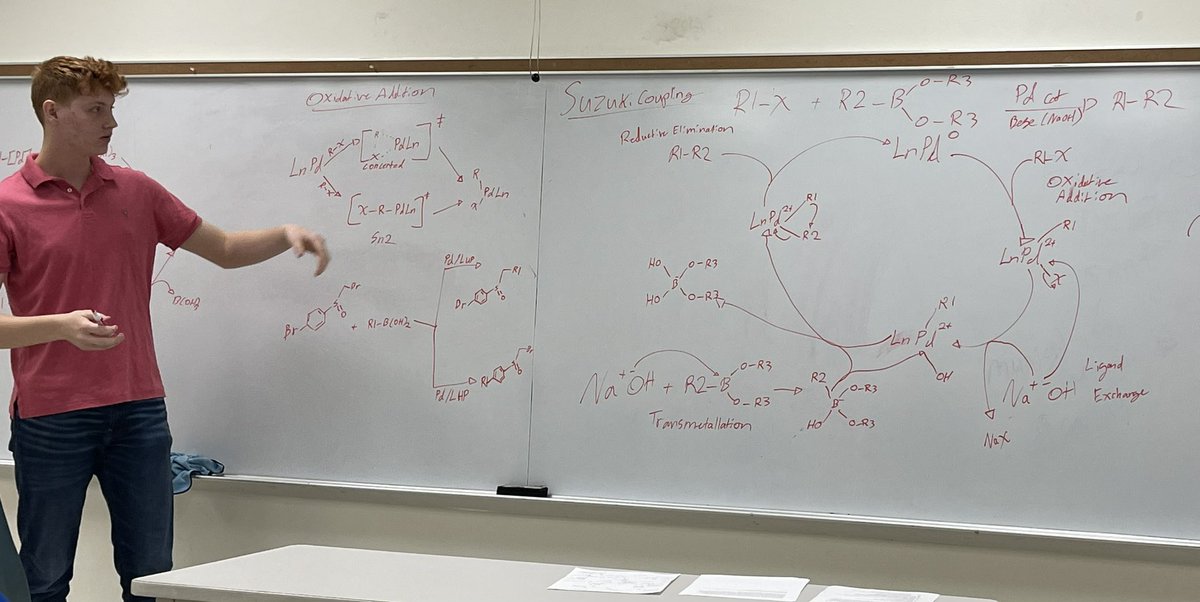 Oxidative Addition
LnPd
R-X
R
X
PdLn
‡
concerted
[X-R-PdLn]‡
Sn2
R
X
PdLn
Br
Br
S
O
+ R1-B(OH)2
Pd/LWP
R1
Br
S
O
Pd/LHP
Br
R1
S
O
B(OH)2
Suzuki Coupling
R1-X + R2-B
O-R3
O-R3
Pd cat
Base (NaOH)
R1-R2
Reductive Elimination
R1-R2
LnPd0
R1-X
Oxidative
Addition
LnPd2+
R1
R2
LnPd2+
R1
X
HO
O-R3
B
HO
O-R3
LnPd2+
R1
OH
Ligand
Exchange
Na+ -OH
NaX
Na+ -OH + R2-B
O-R3
O-R3
Transmetallation
R2
O-R3
B-
HO
O-R3